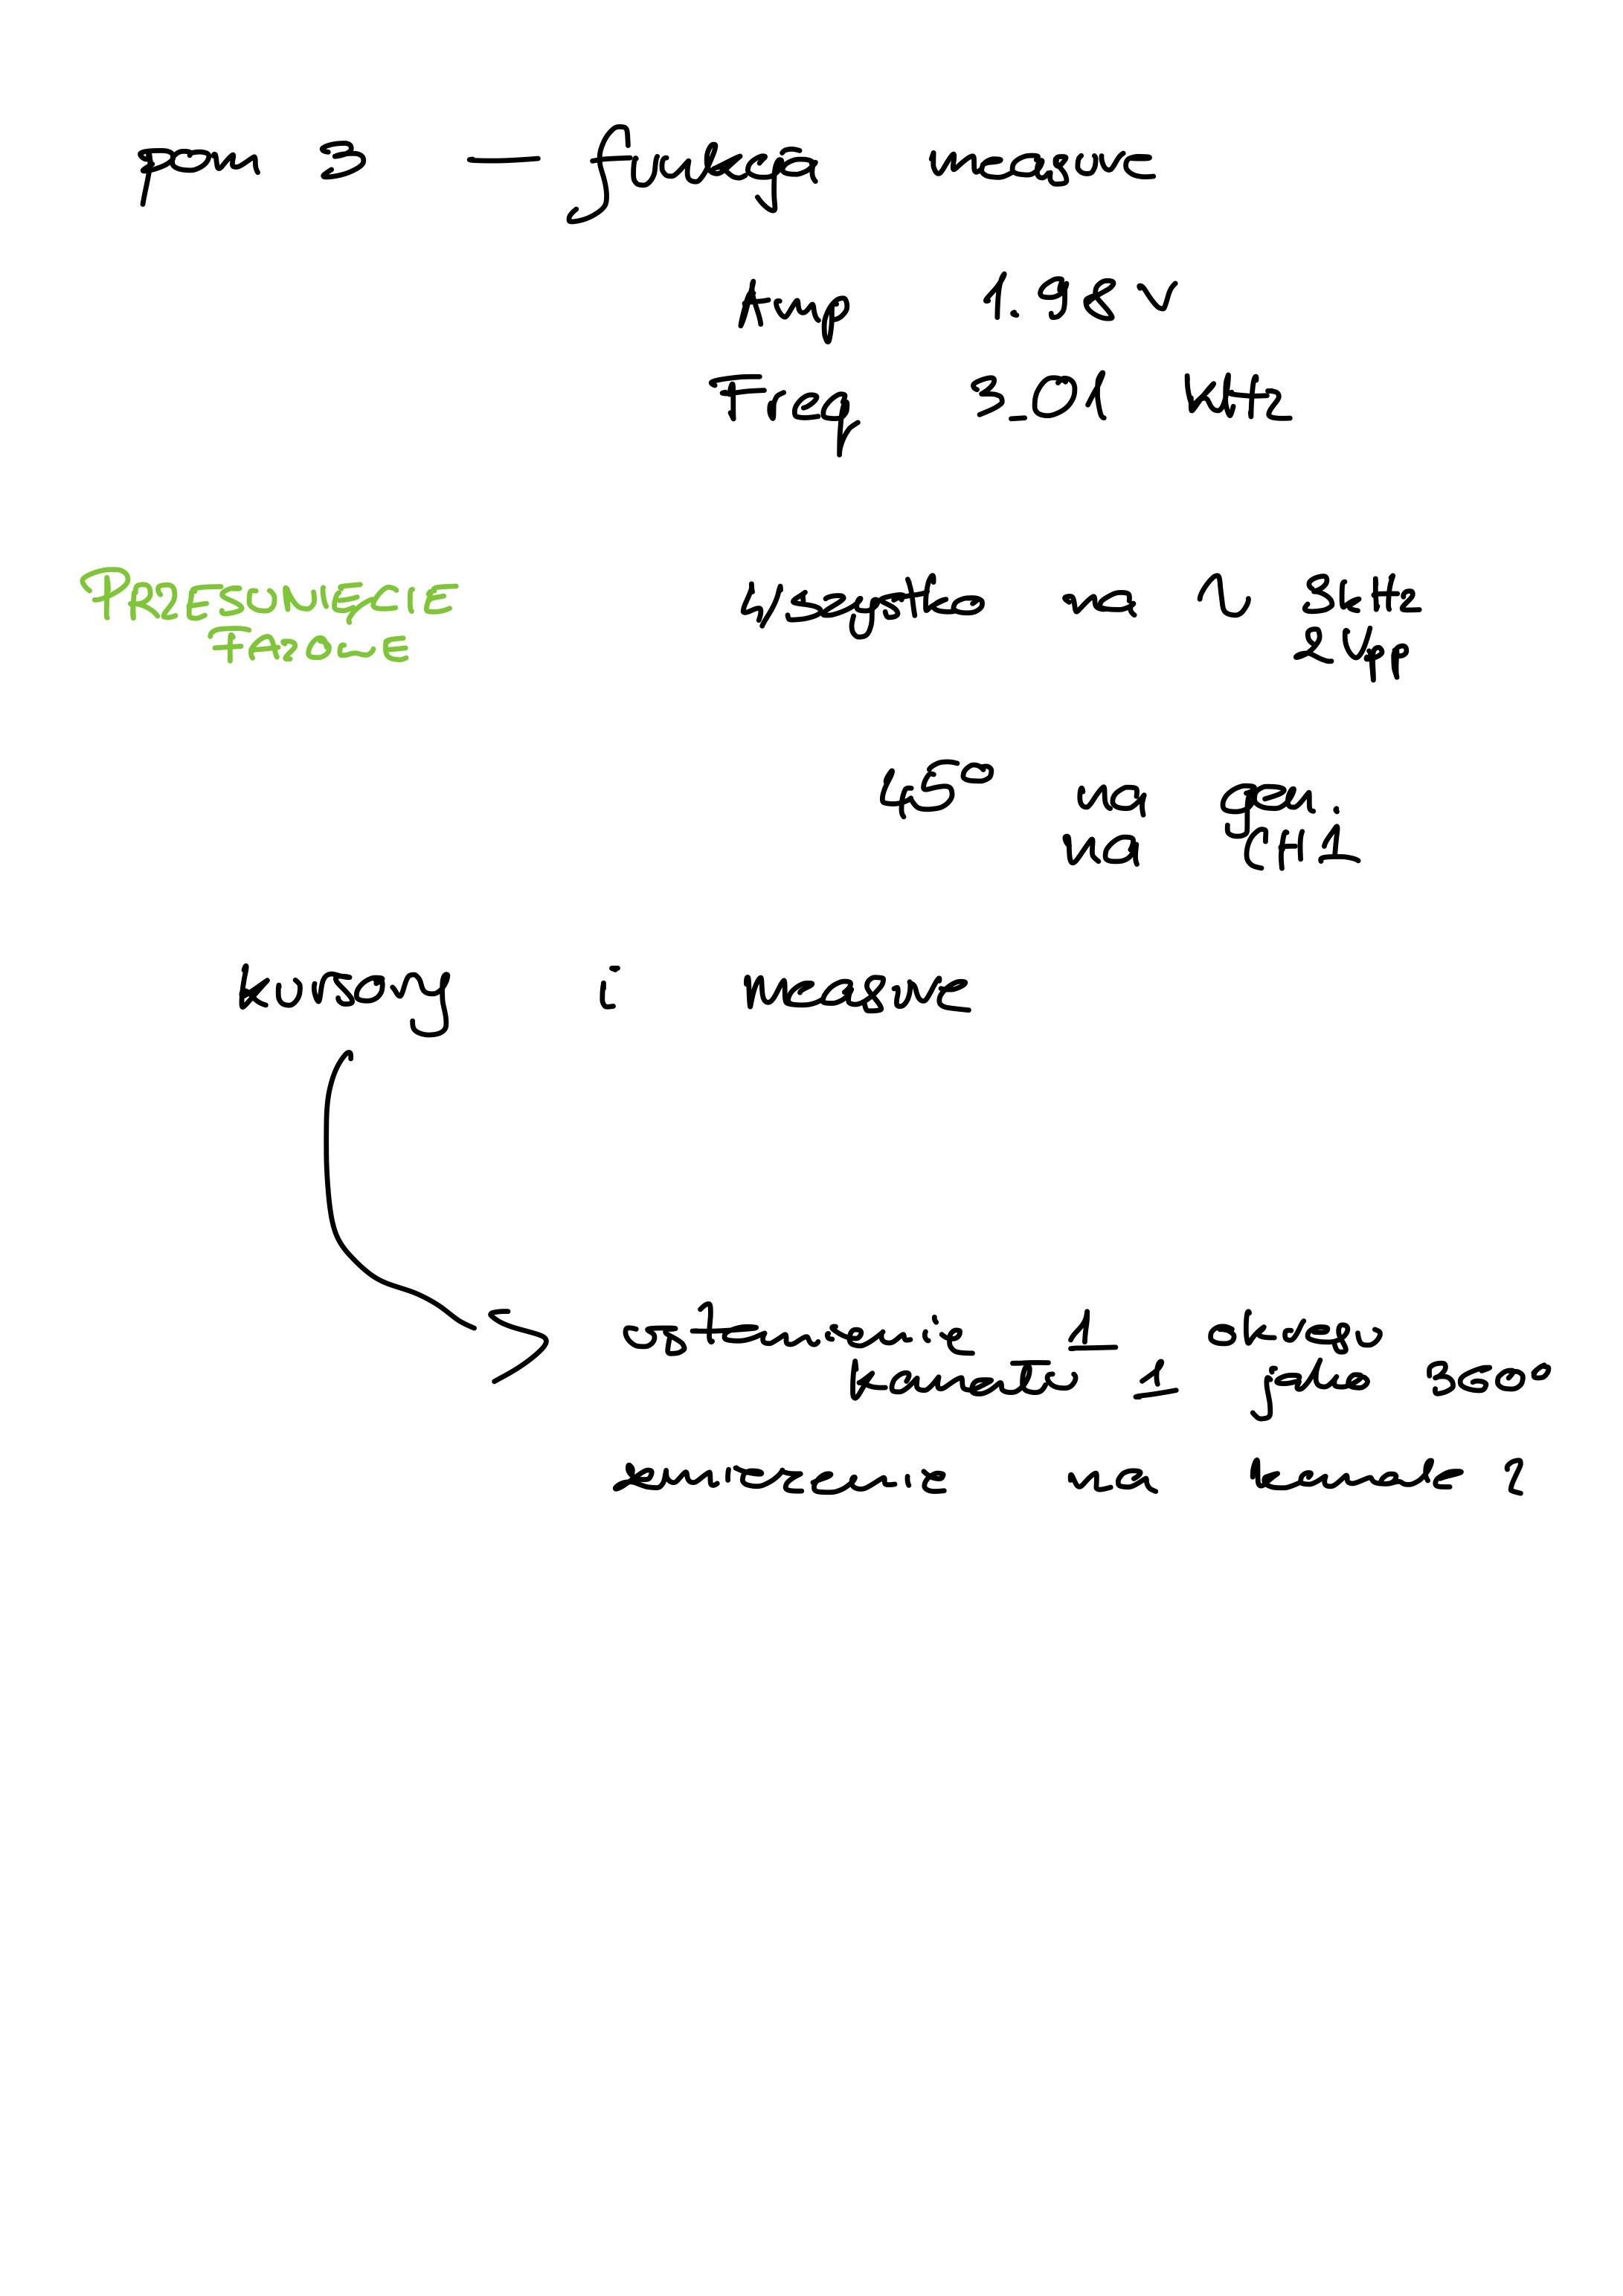 pom 3 — funkcją measure
Amp 1.98 V
Freq 3.01 kHz
PRZESUNIĘCIE
FAZOWE
wszystko na ∿ 3kHz
2Vpp
45° na gen.
na CH1
kursory i measure
ustawienie 1 okresu
kanału 1 jako 360°
zmierzenie na kanale 2